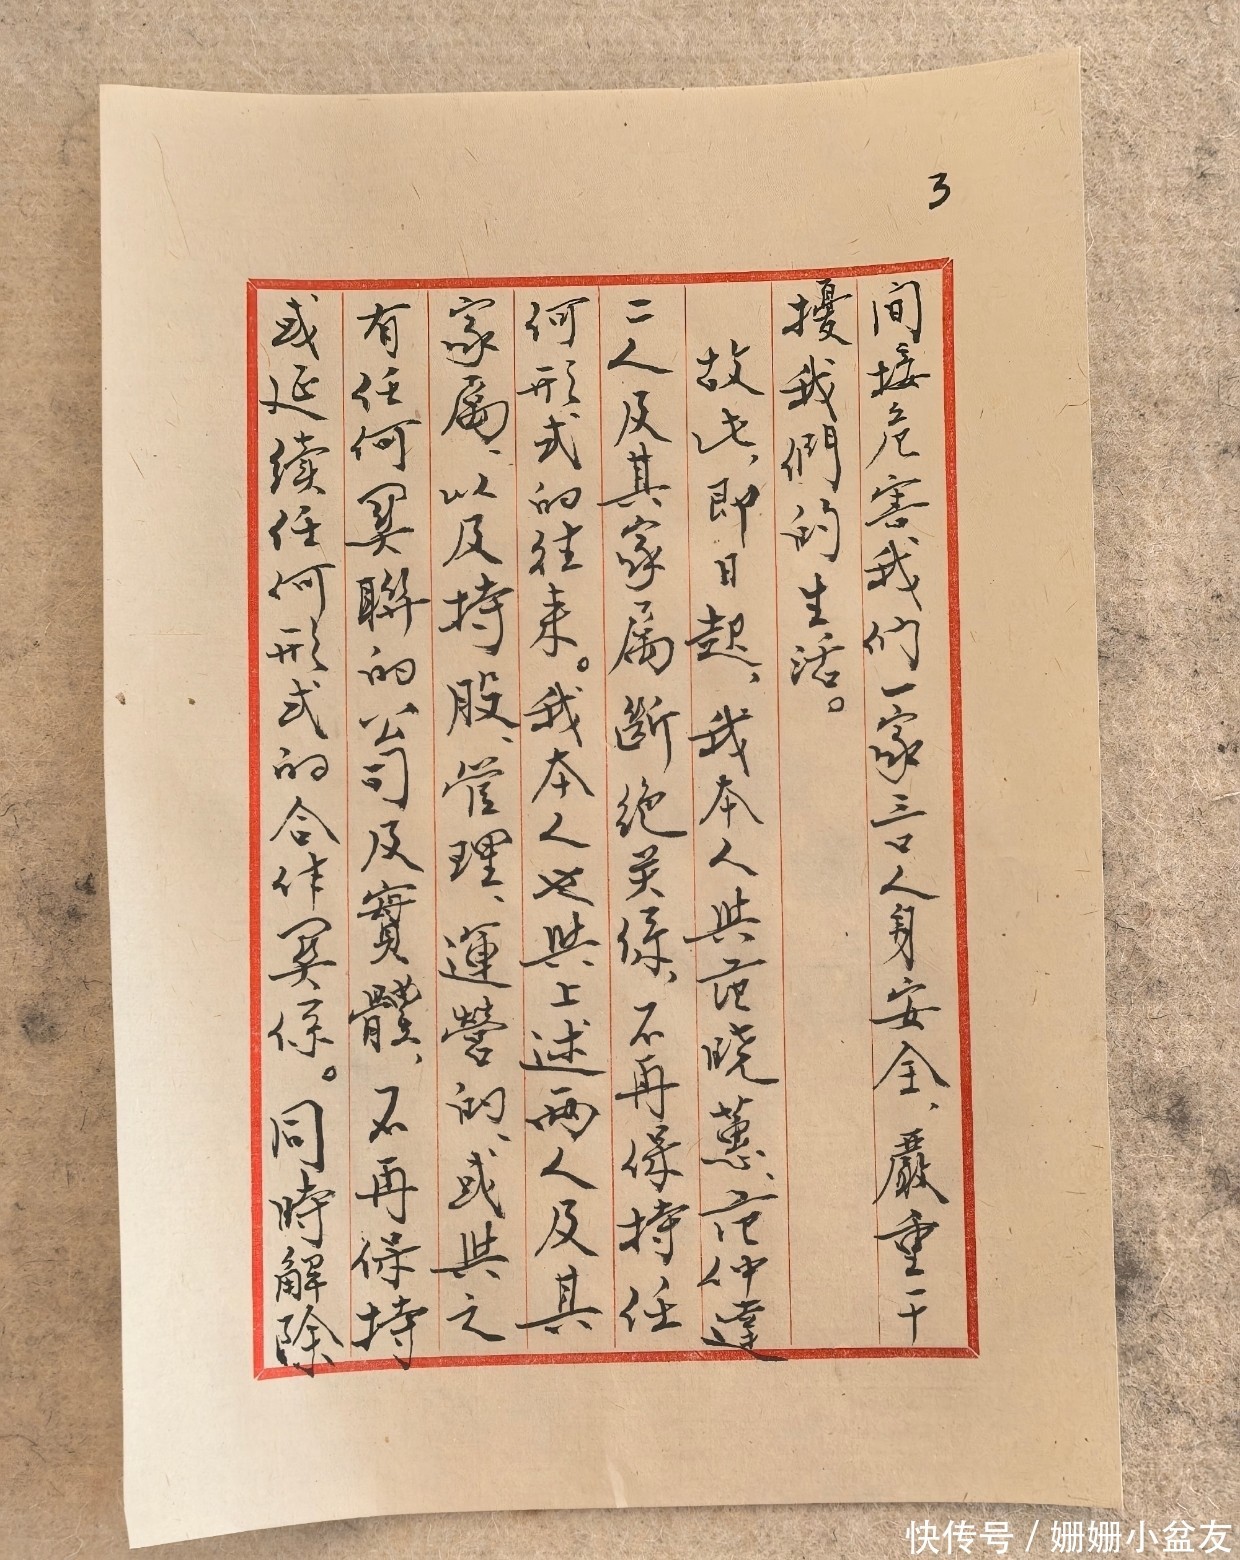 3
间接危害我们一家三口人身安全、嚴重干
擾我們的生活。
故此、即日起、我本人與范晓蕙、范仲達
二人及其家属斷绝关係、不再保持任
何形式的往来。我本人也與上述两人及其
家属、以及持股、管理、運營的、或與之
有任何関聯的公司及實體、不再保持
或延續任何形式的合作関係。同時解除
快传号 / 姗姗小盆友